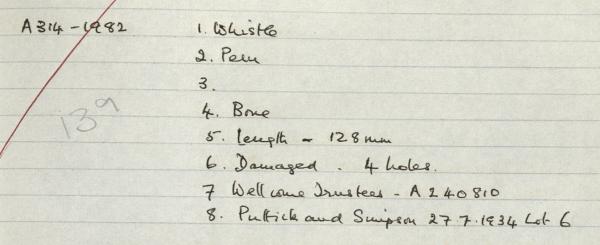 A314-1982 1. Whistle
2. Peru
3.
139
4. Bone
5. Length - 128mm
6. Damaged . 4 holes.
7 Wellcome Trustees - A240810
8. Puttick and Simpson 27.7.1934 Lot 6